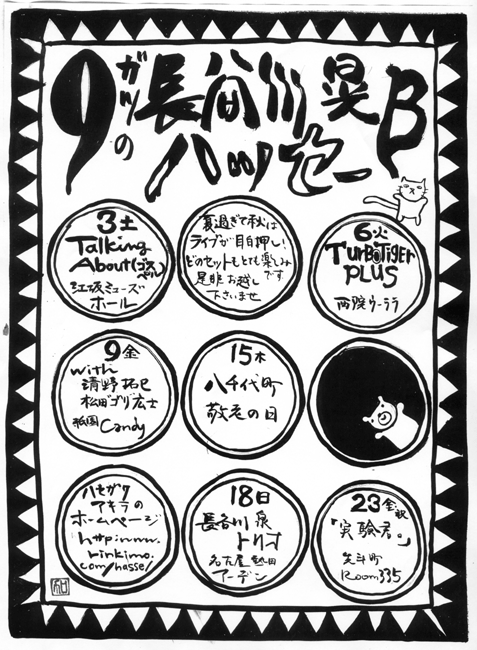 9ガツの
長谷川晃B
ハッセー
3土
Talking
About(ゴスペル)
江坂ミューズ
ホール
夏過ぎて秋は
ライブが目白押し!
どのセットもとても楽しみ
です
是非お越し
下さいませ
6火
TURBOTIGER
PLUS
西院ウーララ
9金
with
清野拓巳
松田"ゴリ"広士
祇園 Candy
15木
八千代町
敬老の日
ハセガワ
アキラの
ホームページ
http:www.
rinkimo.
com/hasse/
18日
長谷川
トリオ
名古屋 熱田
23金祝
「実験君。」
Room335